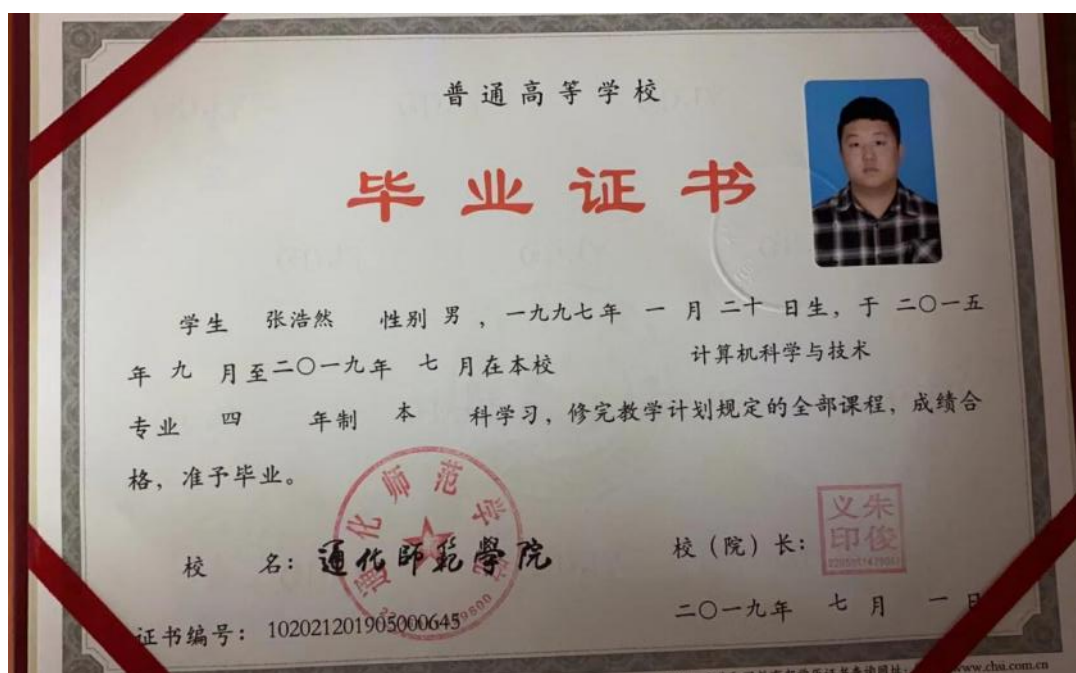 普通高等学校
毕业证书
学生 张浩然 性别 男 ，一九九七年 一 月 二十 日生，于 二〇一五
年 九 月至二〇一九年 七 月在本校 计算机科学与技术
专业 四 年制 本 科学习，修完教学计划规定的全部课程，成绩合
格，准予毕业。
通化师范学院
校 名：通化師範學院
校（院）长：
朱俊义印
证书编号：102021201905000645
二〇一九年 七 月 一 日
查询网址：
www.chsi.com.cn